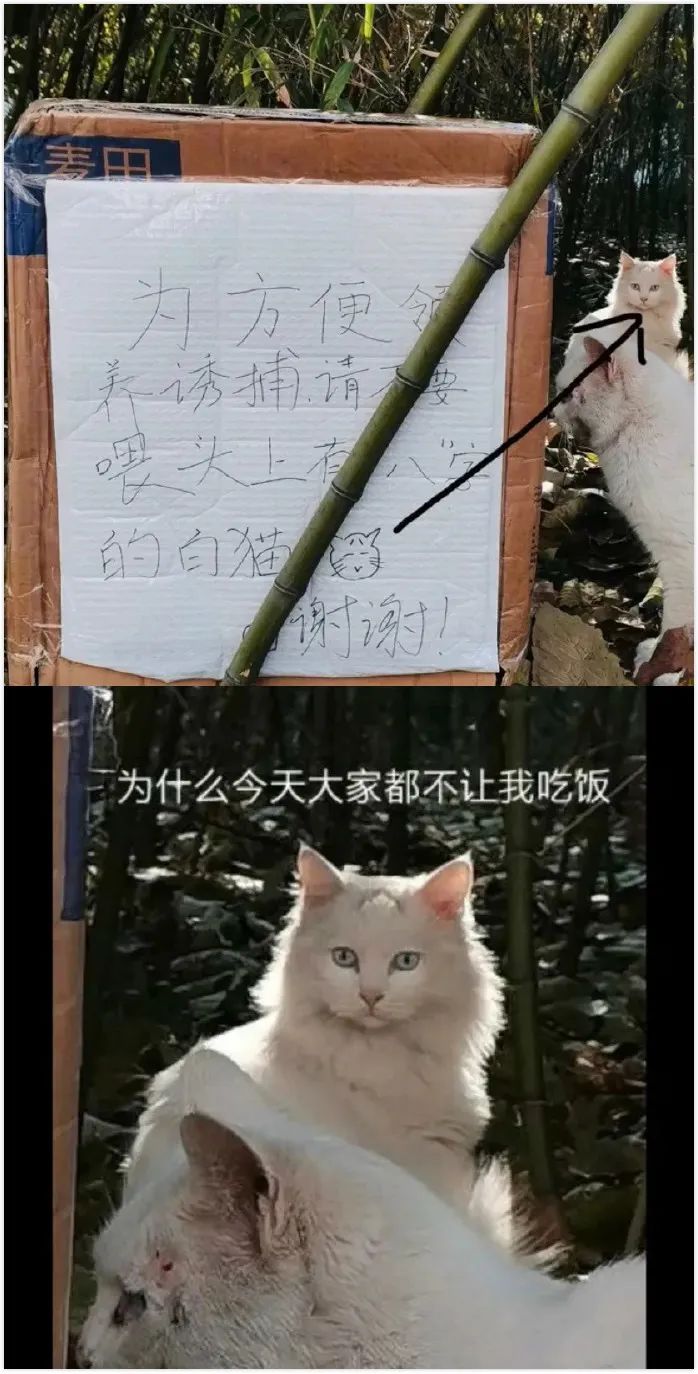 麦田
为方便领
养诱捕,请不要
喂头上有"八"字
的白猫
谢谢!
为什么今天大家都不让我吃饭